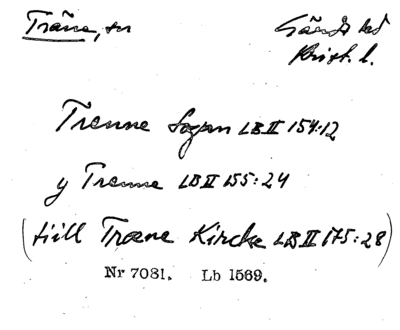 Träne, sn Gärds hd
Krist. l.
Trenne Sogen LB II 154:12
y Trenne LB II 155:24
(till Træne Kircke LB II 175:28)
Nr 7081. Lb 1569.